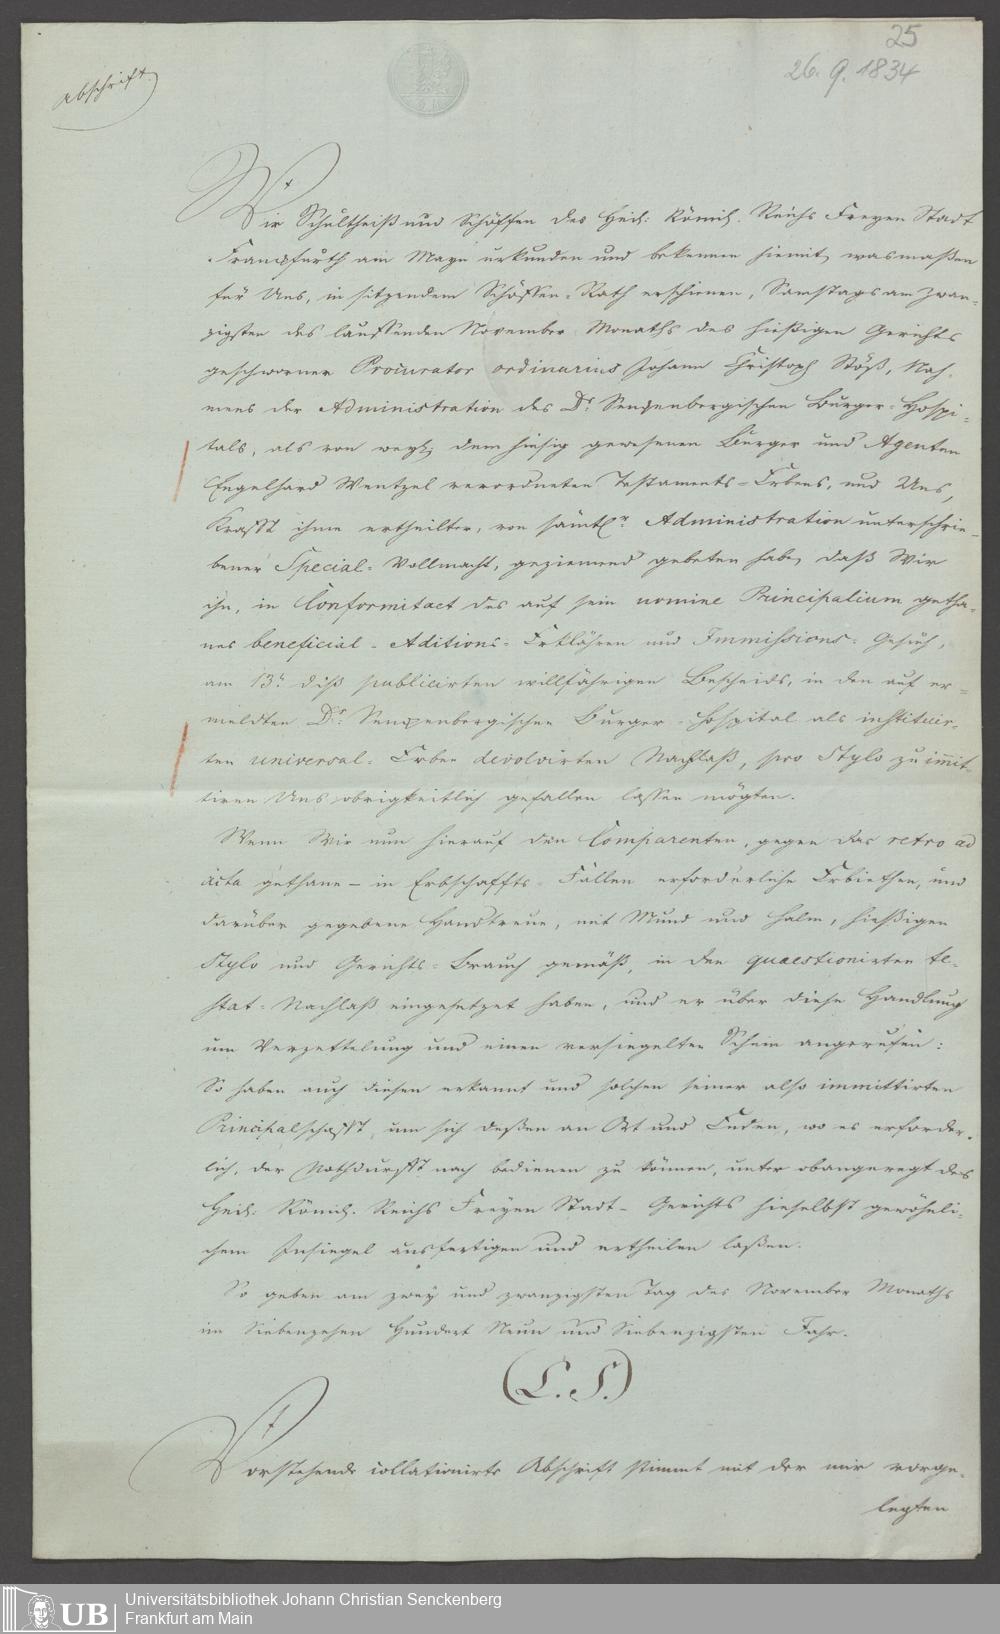 25
26. 9. 1834
Abschrift.
Wir Schultheiß und Schöffen des Heil: Römisch. Reichs Freyen Stadt
Franckfurth am Mayn urkunden und bekennen hiemit, wasmaßen
für Uns, in sitzendem Schöffen-Rath erschienen, Samstags am zwan-
zigsten des lauffenden November Monaths des hiesigen Gerichts
geschworner Procurator ordinarius Johann Christoph Stöß, Nah-
mens der Administration des Dr. Senckenbergischen Burger-Hospi-
tals, als von weyl. dem hiesig gewesenen Burger und Agenten
Engelhard Wentzel verordneten Testaments-Erbens, und Uns,
Krafft ihme ertheilter, von sämtl.r Administration unterschrie-
bener Special-Vollmacht, geziemend gebeten habe, daß Wir
ihn, in Conformitaet des auf sein nomine Principalium getha-
nes beneficial-Aditions-Erklähren und Immissions-Gesuch,
am 13. diß publicirten willfährigen Bescheids, in den auf er-
meldten Dr. Senckenbergischen Burger-Hospital als instituir-
ten universal-Erben devolvirten Nachlaß, pro Stylo zu immit-
tiren Uns obrigkeitlich gefallen lassen mögten.
Wenn Wir nun hierauf den Comparenten, gegen das retro ad
acta gethane - in Erbschaffts-Fällen erforderliche Erbiethen, und
darüber gegebene Handtreue, mit Mund und Halm, hießigen
Stylo und Gerichts-Brauch gemäß, in den quaestionirten te-
stat-Nachlaß eingesetzet haben, und er über diese Handlung
um Verzettelung und einen versiegelten Schein angerufen:
So haben auch diesen erkannt und solchen seiner also immittirten
Principalschafft, um sich deßen an Ort und Enden, wo es erforder-
lich, der Nothdurfft nach bedienen zu können, unter obangeregt des
Heil: Römisch. Reichs Freyen Stadt-Gerichts hieselbst gewöhnli-
chem Insiegel ausfertigen und ertheilen laßen.
So geben am zwey und zwanzigsten Tag des November Monaths
im Siebenzehen Hundert Neun und Siebenzigsten Jahr.
(L. S.)
Vorstehende collationirte Abschrift stimmt mit der mir vorge-
legten
UB
Universitätsbibliothek Johann Christian Senckenberg
Frankfurt am Main